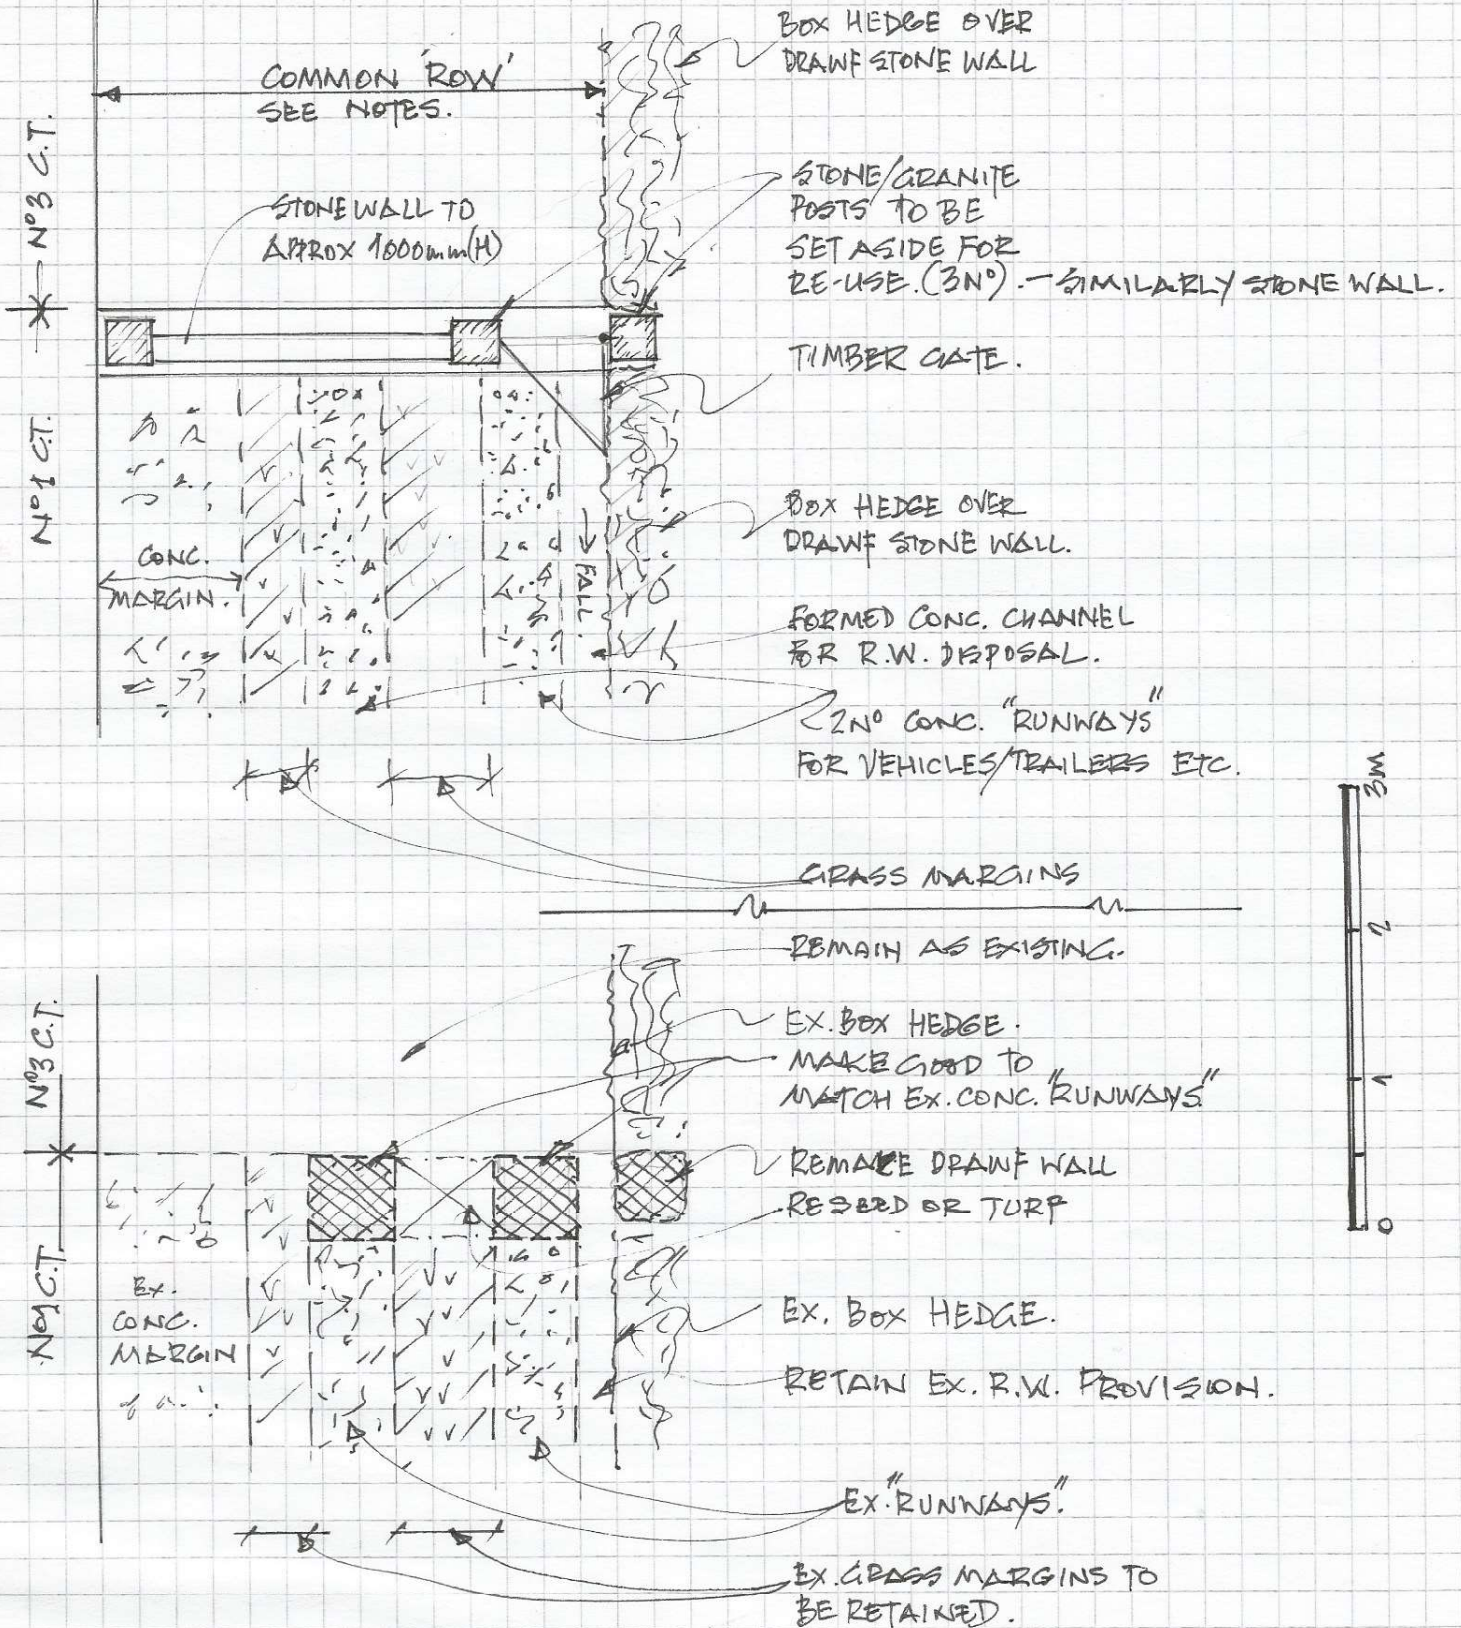 BOX HEDGE OVER
DRAWF STONE WALL
COMMON 'ROW'
SEE NOTES.
Nº3 C.T.
STONE/GRANITE
POSTS TO BE
SET ASIDE FOR
RE-USE.(3Nº).-SIMILARLY STONE WALL.
STONE WALL TO
APPROX 1000mm(H)
TIMBER GATE.
Nº1 C.T.
BOX HEDGE OVER
DRAWF STONE WALL.
CONC.
MARGIN.
FALL.
FORMED CONC. CHANNEL
FOR R.W. DISPOSAL.
2Nº CONC. "RUNWAYS"
FOR VEHICLES/TRAILERS ETC.
3M
2
1
0
GRASS MARGINS
REMAIN AS EXISTING.
Nº3 C.T.
EX. BOX HEDGE.
MAKE GOOD TO
MATCH EX. CONC. "RUNWAYS"
REMAKE DRAWF WALL
RESEED OR TURF
Nº1 C.T.
EX.
CONC.
MARGIN
EX. BOX HEDGE.
RETAIN EX. R.W. PROVISION.
EX. "RUNWAYS".
EX. GRASS MARGINS TO
BE RETAINED.